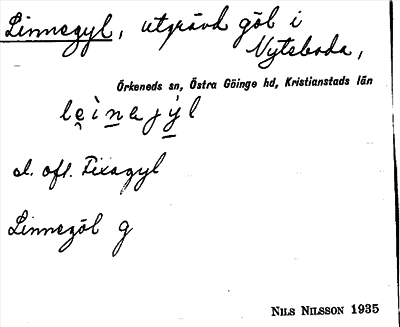 Linnegyl, utgrävd göl i
Nyteboda,
Örkeneds sn, Östra Göinge hd, Kristianstads län
al. ofl. Fixagyl
Linnegöl g
NILS NILSSON 1935